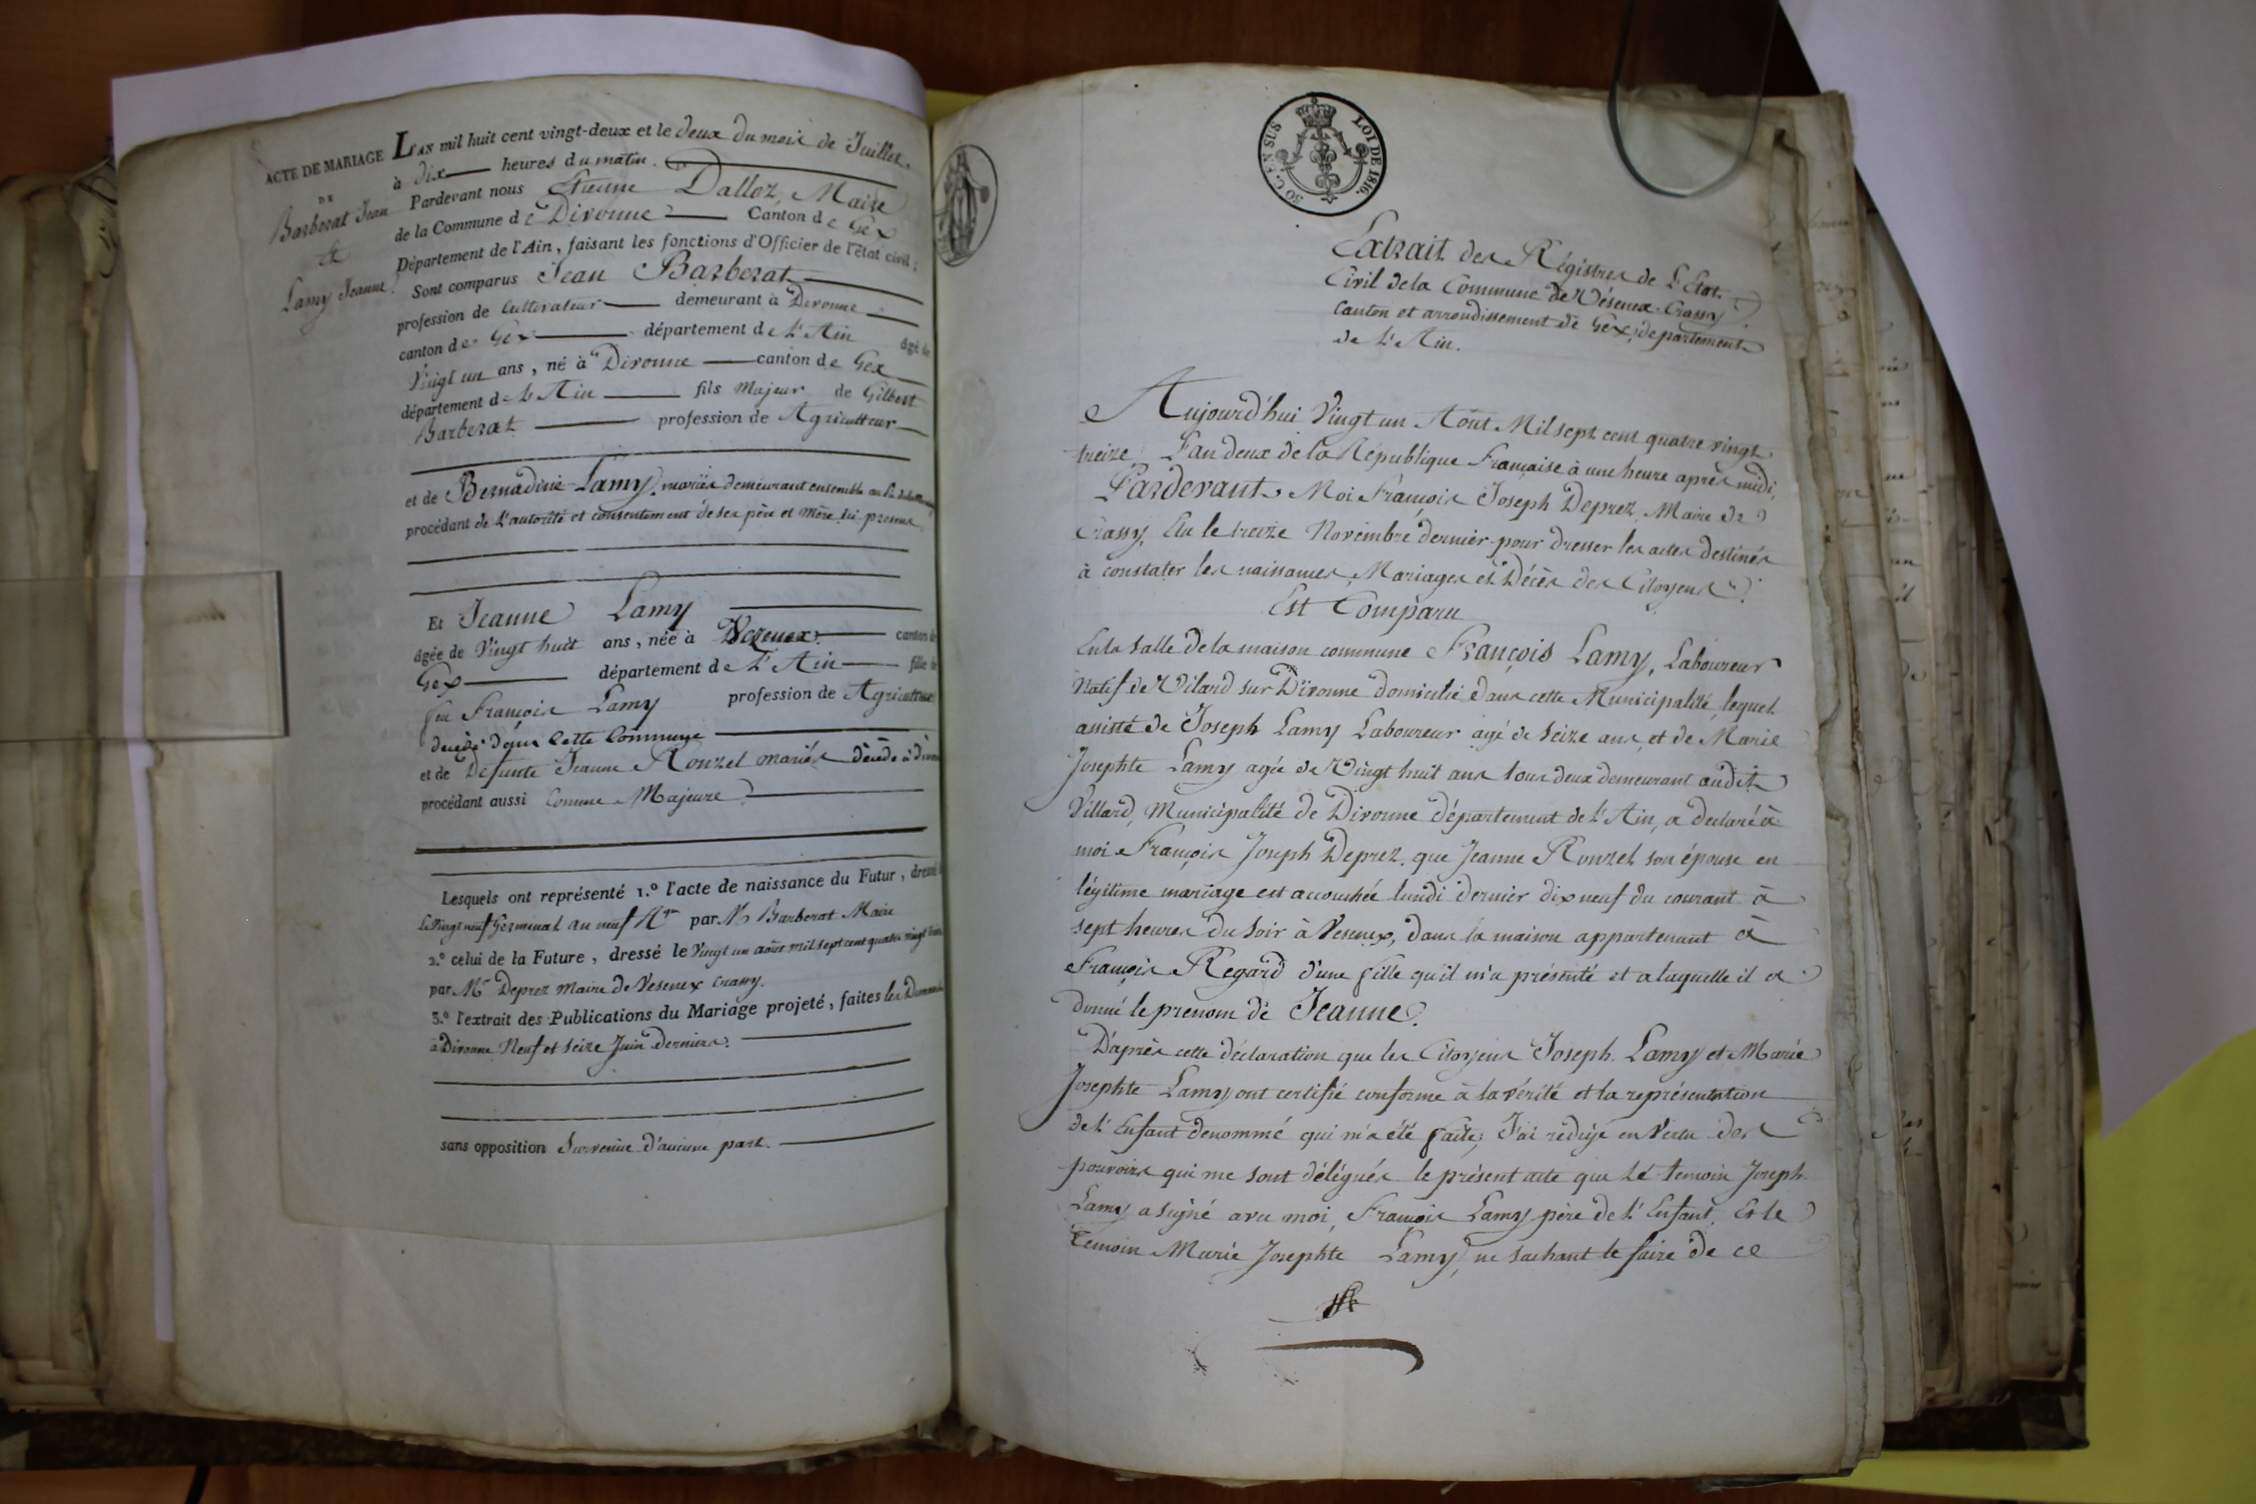 ACTE DE MARIAGE
DE
Barberat Jean
et
Lamy Jeanne
L'AN mil huit cent vingt-deux et le deux du mois de Juillet
à dix heures du matin.
Pardevant nous Etienne Dalloz, Maire
de la Commune de Divonne Canton de Gex
Département de l'Ain, faisant les fonctions d'Officier de l'état civil ;
Sont comparus Jean Barberat
profession de Cultivateur demeurant à Divonne
canton de Gex département de L'Ain âgé de
Vingt un ans, né à Divonne canton de Gex
département de L'Ain fils Majeur de Gilbert
Barberat profession de Agriculteur
et de Bernadine Lamy, mariés demeurant ensemble au
procédant de L'autorité et consentement de ses père et mère ici présens
Et Jeanne Lamy
âgée de Vingt huit ans, née à Vezenex canton de
Gex département de L'Ain fille de
feu François Lamy profession de Agriculteur
décédé dans Cette Commune
et de Defunte Jeanne Rouzel mariés décédé à
procédant aussi Comme Majeure
Lesquels ont représenté 1.º l'acte de naissance du Futur, dressé
Le Vingt neuf Germinal an neuf par Mr Barberat Maire
2.º celui de la Future, dressé le Vingt un août mil sept cent quatre vingt
par Mr Deprez Maire de Vesenex Crassy.
3.º l'extrait des Publications du Mariage projeté, faites les
à Divonne Neuf et Seize Juin derniers.
sans opposition Survenue d'aucune part.
30 C. EN SUS
LOI DE 1816.
Extrait des Régistres de L'Etat
Civil de la Commune de Vésenex-Crassy
canton et arrondissement de Gex, département
de L'Ain.
Aujourd'hui Vingt un Août Mil sept cent quatre vingt
treize L'an deux de la République Française à une heure après midi,
Pardevant Moi François Joseph Deprez, Maire de
Crassy, Elu le treize Novembre dernier pour dresser les actes destinés
à constater les naissances, Mariages et Décès des Citoyens
Est Comparu
En la Salle de la maison commune François Lamy, Laboureur
Natif de Vilard sur Divonne domicilié dans cette Municipalité, lequel
assisté de Joseph Lamy Laboureur agé de Seize ans, et de Marie
Josephte Lamy agée de Vingt huit ans tous deux demeurant audit
Villard, Municipalité de Divonne département de L'Ain, a declaré à
moi François Joseph Deprez, que Jeanne Rouzel son épouse en
légitime mariage est accouchée lundi dernier dix neuf du courant à
sept heures du Soir à Vesenex, dans la maison appartenant à
François Regard d'une fille qu'il m'a présenté et a laquelle il a
donné le prenom de Jeanne.
D'après cette déclaration que les Citoyens Joseph Lamy et Marie
Josephte Lamy ont certifié conforme à la vérité et la représentation
de L'Enfant denommé qui m'a été faite, J'ai rédigé en Vertu des
pouvoirs qui me sont délégués le présent acte que Le temoin Joseph
Lamy a signé avec moi, François Lamy père de L'Enfant, Et le
Temoin Marie Josephte Lamy, ne Sachant le faire de ce